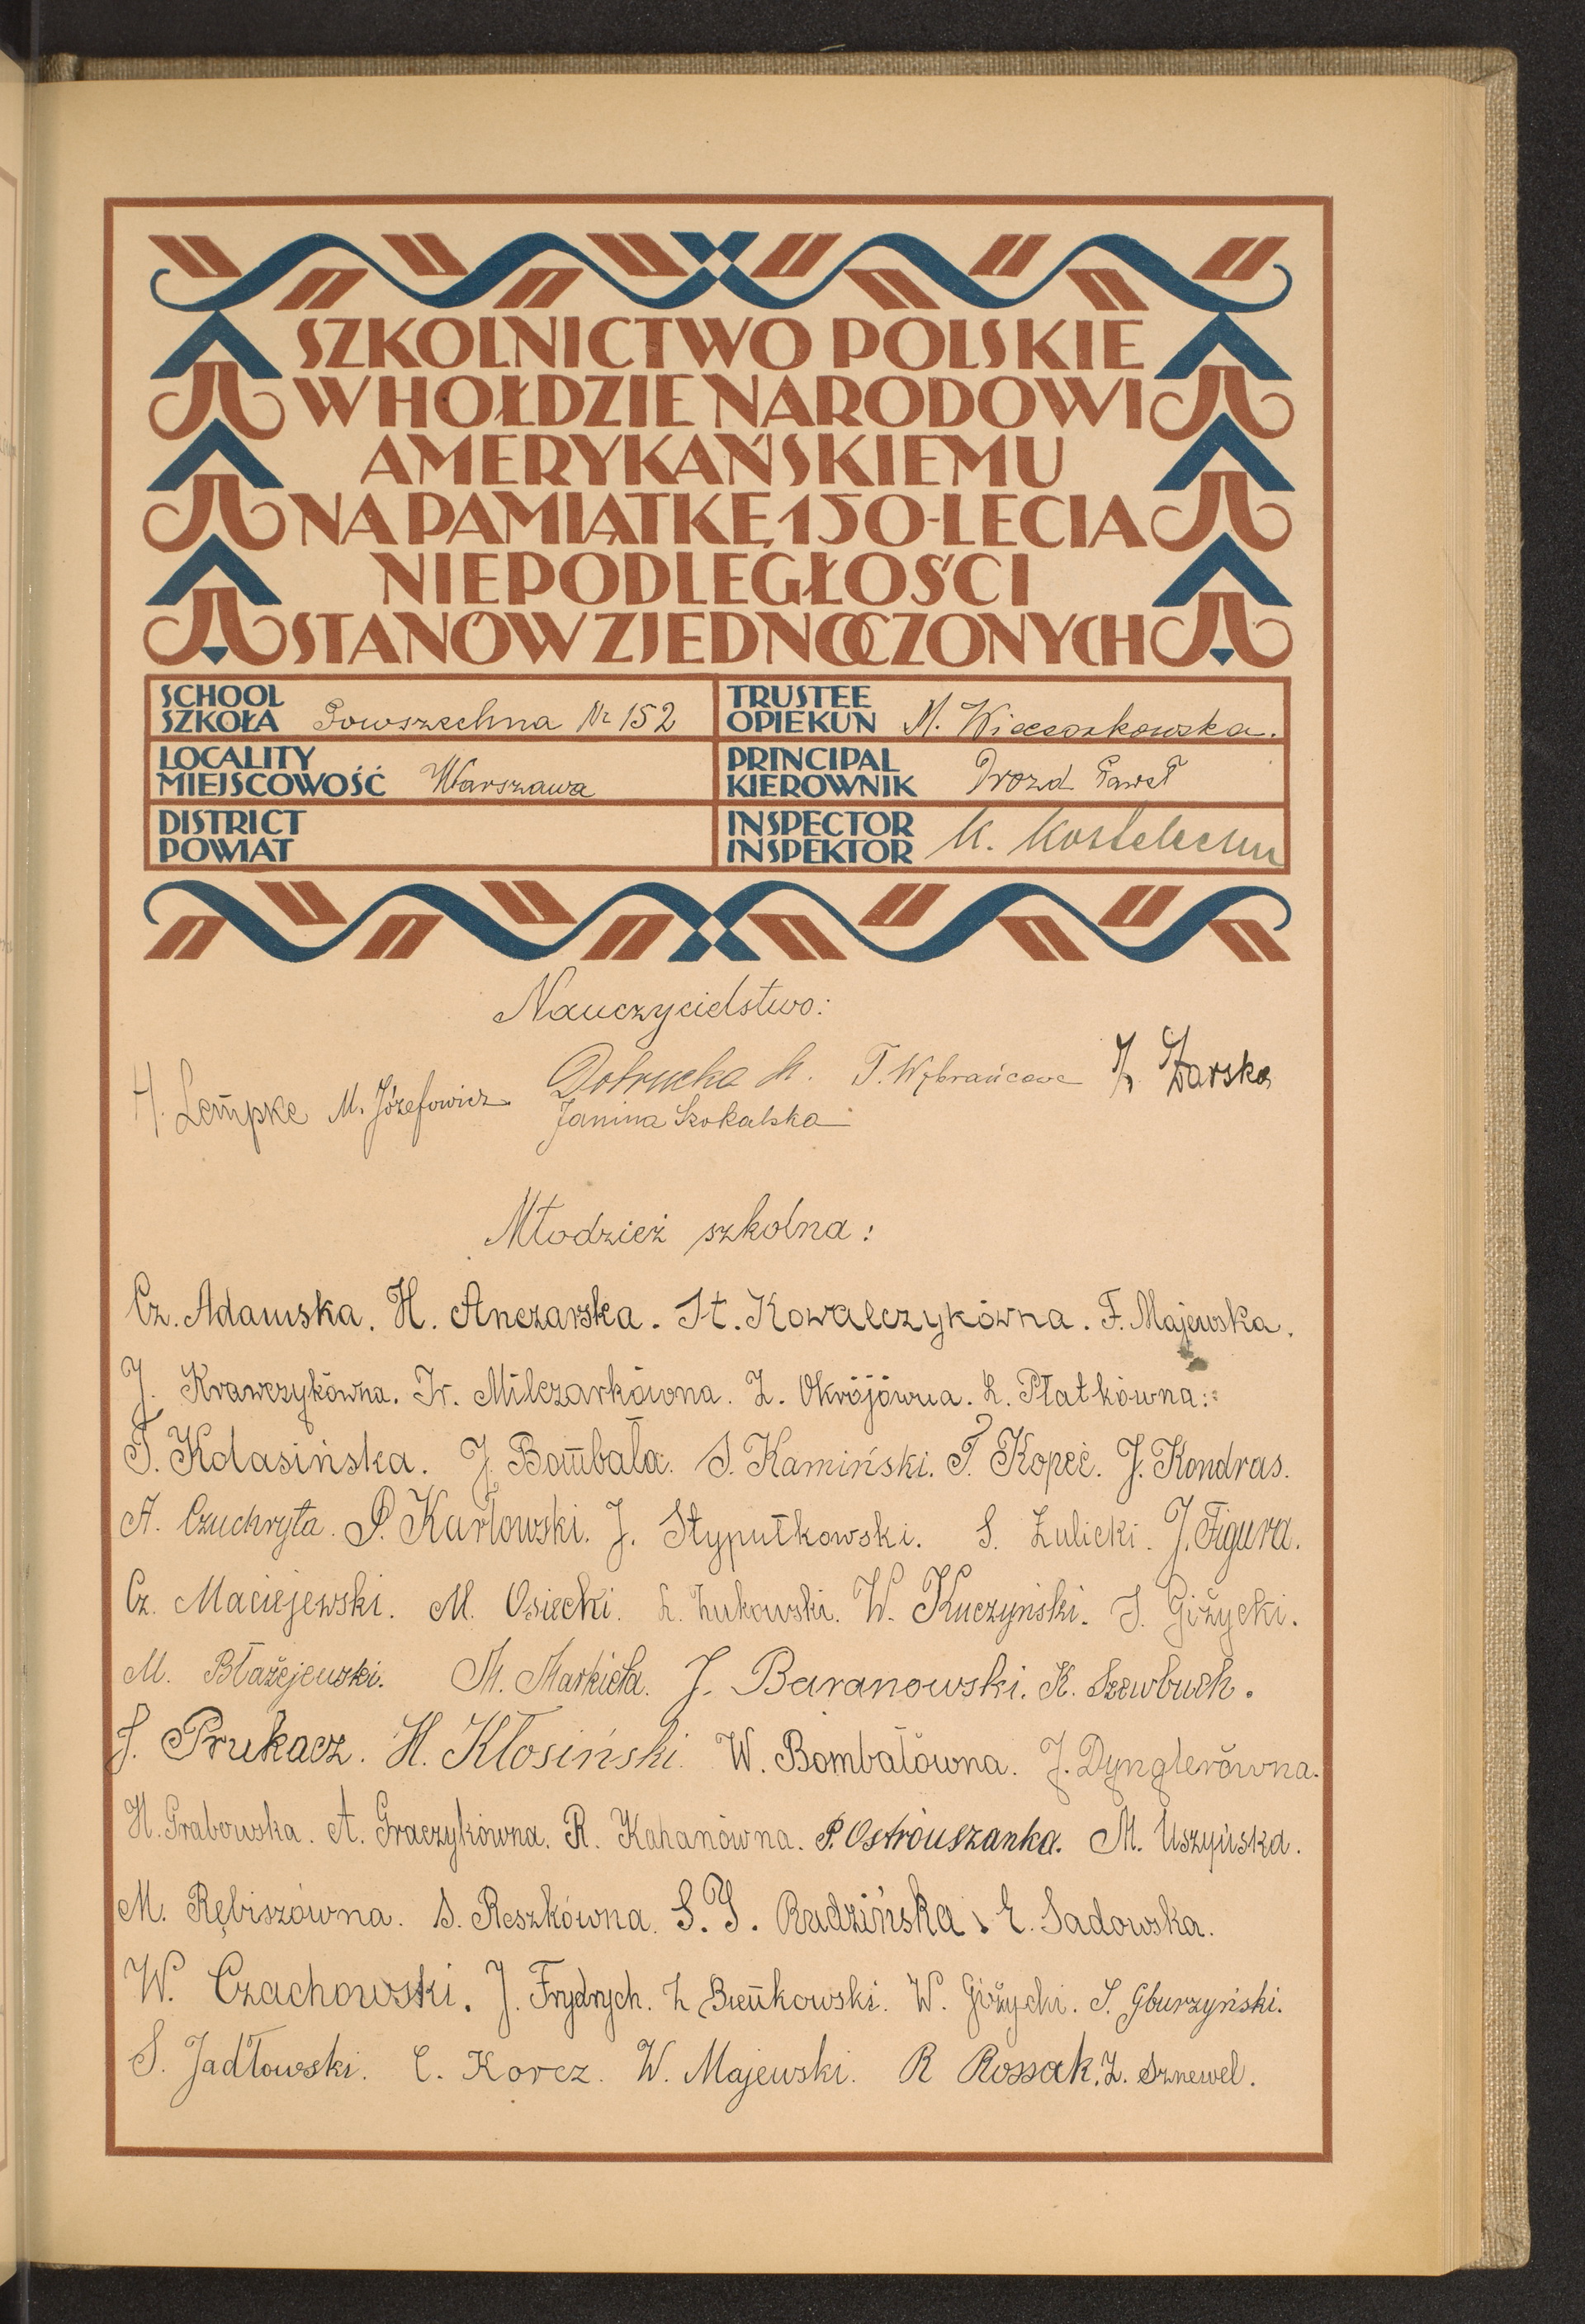 SZKOLNICTWO POLSKIE
W HOŁDZIE NARODOWI
AMERYKAŃSKIEMU
NA PAMIĄTKĘ 150-LECIA
NIEPODLEGŁOŚCI
STANÓW ZJEDNOCZONYCH
SCHOOL
SZKOŁA Powszechna Nr 152
TRUSTEE
OPIEKUN M.
LOCALITY
MIEJSCOWOŚĆ Warszawa
PRINCIPAL
KIEROWNIK Drozd Paweł
DISTRICT
POWIAT
INSPECTOR
INSPEKTOR K.
Nauczycielstwo:
H. Lempke M. Józefowicz Dobrucka M. T. Wybrańcowa Z. Żarska
Janina Szokalska
Młodzież szkolna:
Cz. Adamska. H. Anczarska. St. Kowalczykówna. F. Majewska.
J. Krawczykówna. Ir. Milczarkówna. Z. Okrójówna. L. Płatkówna.
T. Kolasińska. J. Bombała. S. Kamiński. T. Kopeć. J. Kondras.
A. Czuchryta. P. Karłowski. J. Stypułkowski. S. Żulicki. J. Figura.
Cz. Maciejewski. M. Osiecki. L. Żukowski. W. Kuczyński. S. Giżycki.
M. Błażejewski. M. Markieta. J. Baranowski. K. Szewbuch.
S. Prukacz. H. Kłosiński. W. Bombałówna. J. Dynglerówna.
H. Grabowska. A. Graczykówna. R. Kahanówna. P. Ostrouszanka. M. Uszyńska.
M. Rębiszówna. S. Reszkówna. S. J. Rudzińska. E. Sadowska.
W. Czachowski. J. Frydrych. Z. Bieńkowski. W. Giżycki. S. Gburzyński.
S. Jadłowski. C. Korcz. W. Majewski. R Rossak. Z. Sznewel.